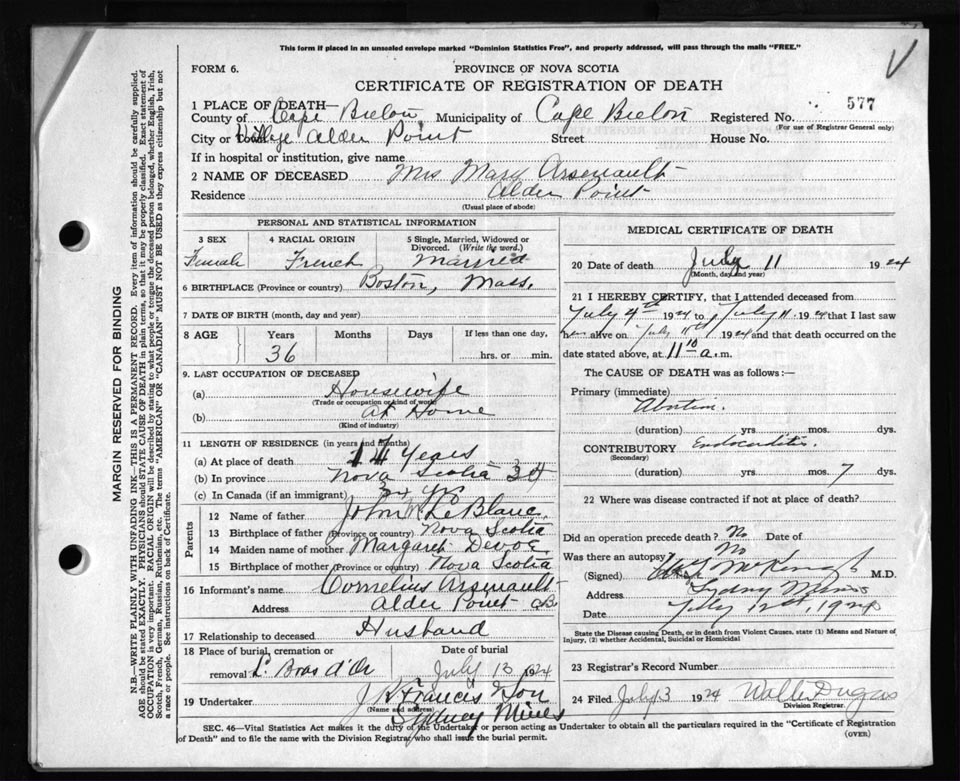 This form if placed in an unsealed envelope marked "Dominion Statistics Free", and properly addressed, will pass through the mails "FREE."
FORM 6.
PROVINCE OF NOVA SCOTIA
CERTIFICATE OF REGISTRATION OF DEATH
577
1 PLACE OF DEATH—
County of Cape Breton Municipality of Cape Breton Registered No.
(For use of Registrar General only)
City or Town Village Alder Point Street House No.
If in hospital or institution, give name
2 NAME OF DECEASED Mrs Mary Arsenault
Residence Alder Point
(Usual place of abode)
PERSONAL AND STATISTICAL INFORMATION
3 SEX 4 RACIAL ORIGIN 5 Single, Married, Widowed or Divorced. (Write the word.)
Female French Married
6 BIRTHPLACE (Province or country) Boston, Mass.
7 DATE OF BIRTH (month, day and year)
8 AGE Years Months Days If less than one day,
36 hrs. or min.
9. LAST OCCUPATION OF DECEASED
(a) Housewife
(Trade or occupation or kind of work)
(b) at Home
(Kind of industry)
11 LENGTH OF RESIDENCE (in years and months)
(a) At place of death 14 Years
(b) In province Nova Scotia 34
(c) In Canada (if an immigrant) 34 yrs
Parents
12 Name of father John LeBlanc
13 Birthplace of father (Province or country) Nova Scotia
14 Maiden name of mother Margaret Devoe
15 Birthplace of mother (Province or country) Nova Scotia
16 Informant's name Cornelius Arsenault
Address Alder Point CB
17 Relationship to deceased Husband
18 Place of burial, cremation or removal L. Bras d'Or Date of burial July 13 1924
19 Undertaker J K Francis & Son
(Name and address)
Sydney Mines
MEDICAL CERTIFICATE OF DEATH
20 Date of death July 11 1924
(Month, day and year)
21 I HEREBY CERTIFY, that I attended deceased from
July 4th 1924 to July 11 1924 that I last saw
her alive on July 11th 1924 and that death occurred on
date stated above, at 11 10 a.m.
The CAUSE OF DEATH was as follows:—
Primary (immediate)
Abortion.
(duration) yrs mos. dys.
CONTRIBUTORY Endocarditis.
(Secondary)
(duration) yrs. mos. 7 dys.
22 Where was disease contracted if not at place of death?
Did an operation precede death? No Date of
Was there an autopsy? No
(Signed) M.D.
Address Sydney Mines
Date July 12th, 1924
State the Disease causing Death, or in death from Violent Causes, state (1) Means and Nature of Injury, (2) whether Accidental, Suicidal or Homicidal
23 Registrar's Record Number
24 Filed July 13 1924 Walter Dugas
Division Registrar.
SEC. 46—Vital Statistics Act makes it the duty of the Undertaker or person acting as Undertaker to obtain all the particulars required in the "Certificate of Registration of Death" and to file the same with the Division Registrar who shall issue the burial permit.
(OVER)
MARGIN RESERVED FOR BINDING
N.B.—WRITE PLAINLY WITH UNFADING INK—THIS IS A PERMANENT RECORD. Every item of information should be carefully supplied.
AGE should be stated EXACTLY. PHYSICIANS should STATE CAUSE OF DEATH in plain terms, so that it may be properly classified. Exact statement of
OCCUPATION is very important. RACIAL ORIGIN will be described by stating to what people or tongue the deceased person belonged, whether English, Irish,
Scotch, French, German, Russian, Ruthenian, etc. The terms "AMERICAN" OR "CANADIAN" MUST NOT BE USED as they express citizenship but not
a race or people. See instructions on back of Certificate.